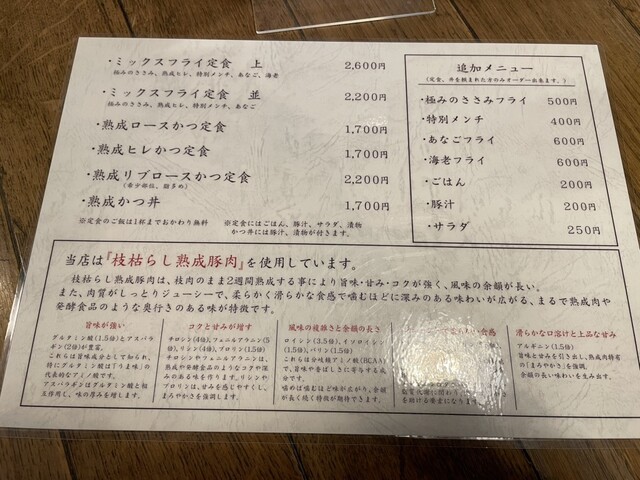 ・ミックスフライ定食 上 2,600円
極みのささみ、熟成ヒレ、特別メンチ、あなご、海老
・ミックスフライ定食 並 2,200円
極みのささみ、熟成ヒレ、特別メンチ、あなご
・熟成ロースかつ定食 1,700円
・熟成ヒレかつ定食 1,700円
・熟成リブロースかつ定食 2,200円
(希少部位、脂多め)
・熟成かつ丼 1,700円
※定食のご飯は1杯までおかわり無料
※定食にはごはん、豚汁、サラダ、漬物
かつ丼には豚汁、漬物が付きます。
追加メニュー
(定食、丼を頼まれた方のみオーダー出来ます。)
・極みのささみフライ 500円
・特別メンチ 400円
・あなごフライ 600円
・海老フライ 600円
・ごはん 200円
・豚汁 200円
・サラダ 250円
当店は『枝枯らし熟成豚肉』を使用しています。
枝枯らし熟成豚肉は、枝肉のまま2週間熟成する事により旨味・甘み・コクが強く、風味の余韻が長い。
また、肉質がしっとりジューシーで、柔らかく滑らかな食感で噛むほどに深みのある味わいが広がる、まるで熟成肉や
発酵食品のような奥行きのある味が特徴です。
旨味が強い
グルタミン酸(1.5倍)とアスパラ
ギン(2倍)が豊富。
これらは旨味成分として知られ、
特にグルタミン酸は「うま味」の
代表的なアミノ酸です。
アスパラギンはグルタミン酸と相
互作用し、味の厚みを増します。
コクと甘みが増す
チロシン(4倍)、フェニルアラニン(5
倍)、リシン(4倍)、プロリン(1.5倍)
チロシンやフェニルアラニンは、
熟成や発酵食品のようなコクや深
みのある味を作ります。リシンや
プロリンは、甘みを感じやすくし、
まろやかさを強調。
風味の複雑さと余韻の長さ
ロイシン(3.5倍)、イソロイシン
(1.5倍)、バリン(1.5倍)
これらは分岐鎖アミノ酸(BCAA)
で、旨味や香ばしさに寄与する成
分です。
噛めば噛むほど味が広がり、余韻
が長く続く特徴が期待できます。
食感
を助ける栄養素になります。
滑らかな口溶けと上品な甘み
アルギニン(1.5倍)
旨味と甘みを引き出し、熟成肉特有
の「まろやかさ」を強調。
余韻の長い味わいを生み出す。